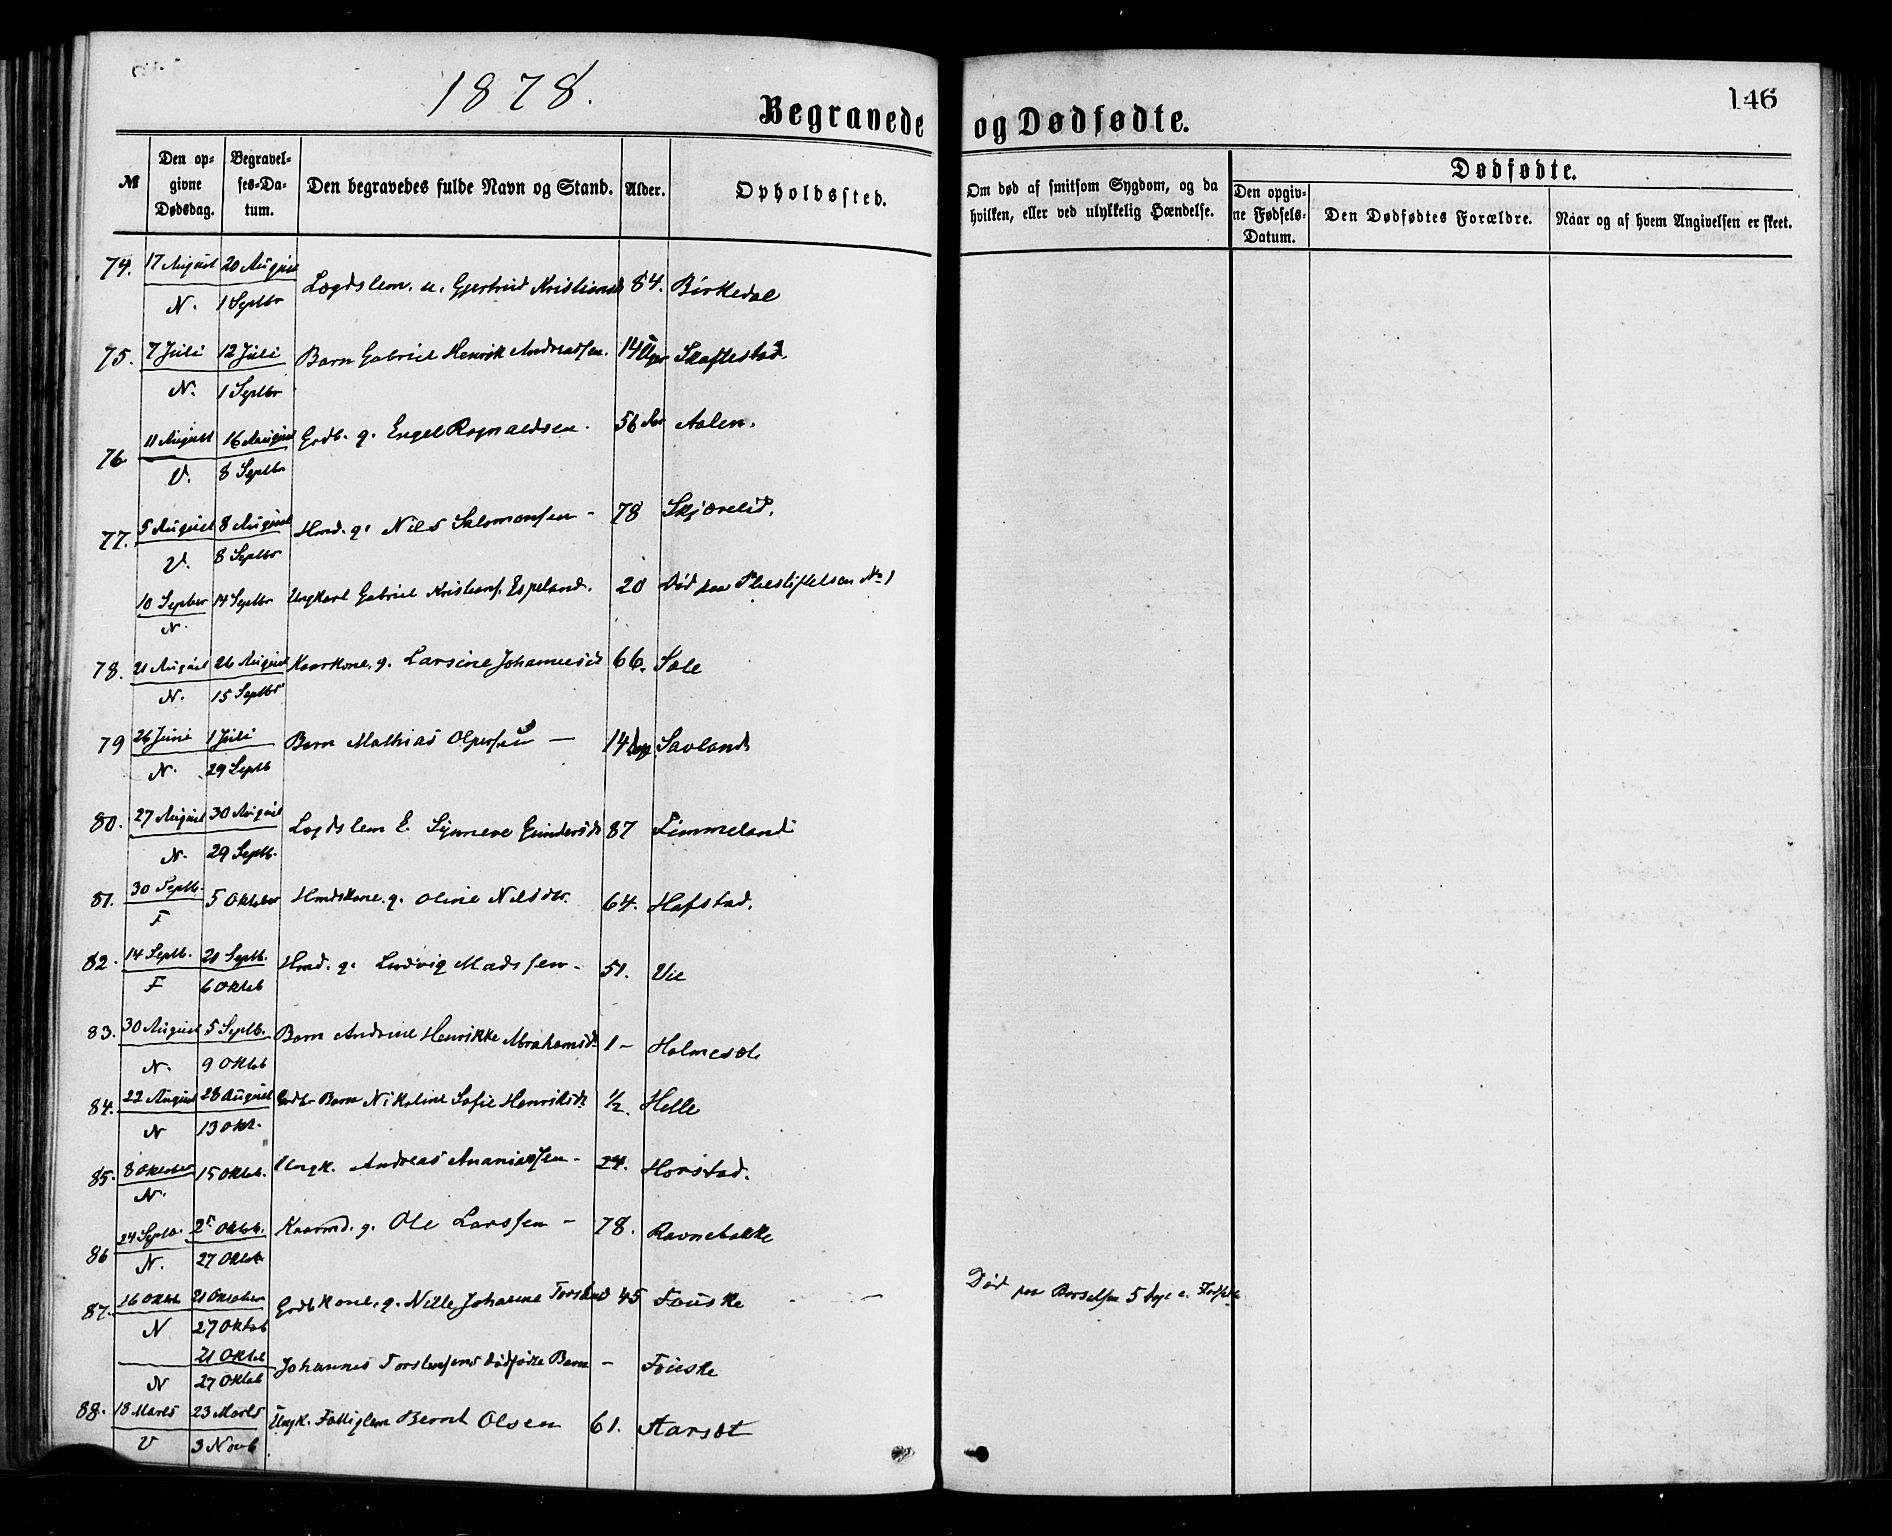 1878.
146
Begravede og Dødfødte.
№
Den opgivne Dødsdag.
Begravelses-Datum.
Den begravedes fulde Navn og Stand.
Alder.
Opholdssted.
Om død af smitsom Sygdom, og da hvilken, eller ved ulykkelig Hændelse.
Dødfødte.
Den opgivne Fødsels-Datum.
Den Dødfødtes Forældre.
Naar og af hvem Angivelsen er skeet.
74. 17 August 20 August Lægdslem. u. Gjertrud Kristiansd 84. Birkedal
N. 1 Septbr
75. 7 Juli 12 Juli Barn Gabriel Henrik Andreassen. 14 Uger Skaftestad.
N. 1 Septbr
76. 11 August 16 August Grdb. g. Engel Rognaldsen. 56 Aar Aalen.
V. 8 Septbr
77. 5 August 8 August Hmd. g. Nils Salomonsen - 78 Skjærelid.
V. 8 Septbr
10 Septbr 14 Septbr Ungkarl Gabriel Kristians. Espeland. 20 Død paa Pleiestiftelsen No 1
N.
78. 21 August 26 August Kaarkone. g. Larsine Johannesd 66. Sale
N. 15 Septbr
79 26 Juni 1 Juli Barn Mathias - 14 Savland
N. 29 Septb
80. 27 August 30 August Lægdslem E. Synneve Gundersd 87 Timmeland
N. 29 Septb.
81. 30 Septb. 5 Oktober Hmdskone. g. Oline Nilsdtr. 64. Hafstad.
F
82. 14 Septb. 21 Septb. Hmd. g. Ludvig Madssen - 51. Vie
F 6 Oktob
83. 30 August 5 Septb. Barn Andrine Henrikke Abrahamsd. 1 - Holmesæt
N. 9 Oktob
84. 22 August 28 August Grdbr Barn Nikoline Sofie Henriksd. ½. Helle
N 13 Okt.
85. 8 Oktober 15 Oktob. Ungk. Andreas Ananiassen - 24. Horstad.
N.
86 24 Septb. Oktob. Kaarmd. g. Ole Larssen - 78. Ravnebakke
N. 27 Oktob
87. 16 Oktb 21 Oktober Grdbkone. g. Nille Johanne 45 Fauske - Død paa Barselsen 5 Dage e. Fødsel
N 27 Oktob
21 Oktob Johannes Torstensens dødfødte Barn - Fauske
N 27 Oktob
88. 18 Marts 23 Marts Ungk. Fattiglem Bernt Olsen 61. Aarsæt
V 3 Novb